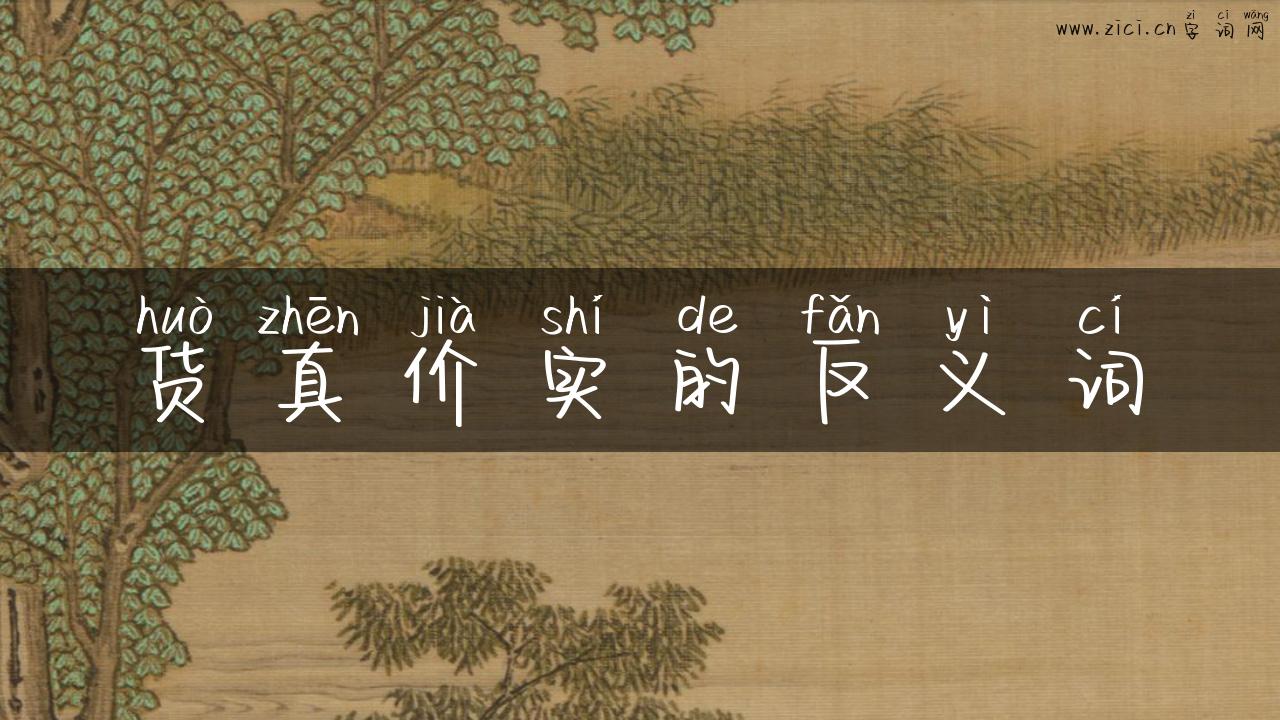 zì cí wǎng
www.zici.cn 字词网
huò zhēn jià shí de fǎn yì cí
货真价实的反义词